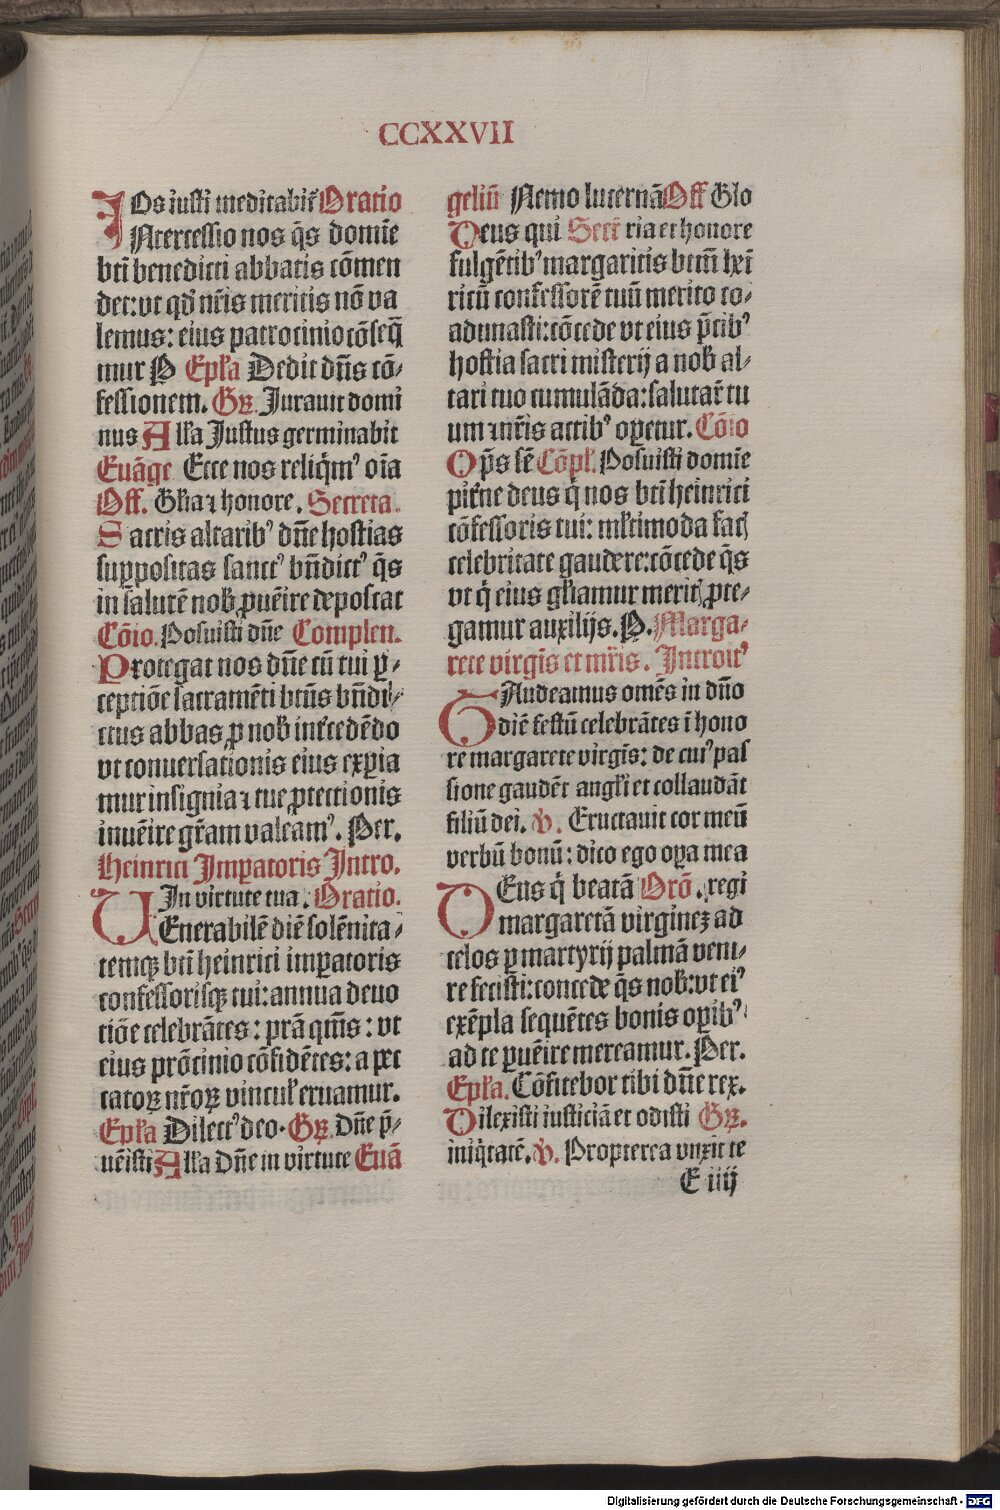 CCXXVII
Os iusti meditabit᷑ Oratio
INtercessio nos q̄s domīe
bt̄i benedicti abbatis cōmen
det: vt qd̕ nr̄is meritis nō va
lemus: eius patrocinio cōseq̄
mur P Ep̄ła Dedit dn̄s cō/
fessionem. Gꝝ. Jurauit domi
nus Alła Justus germinabit
Euāge Ecce nos reliq̄mꝰ oīa
Off. Gl̄ia ⁊ honore. Secreta.
Sacris altaribꝰ dn̄e hostias
suppositas sanctꝰ bn̄dictꝰ q̄s
in salutē nob̕ ꝓuēire deposcat
Cōio. Posuisti dn̄e Complen.
Protegat nos dn̄e cū tui ꝑ/
ceptiōe sacramēti btūs bn̄di/
ctus abbas ꝓ nob̕ int̕cedēdo
vt conuersationis eius expia
mur insignia ⁊ tue ꝓtectionis
inuēire gr̄am valeamꝰ. Per.
Heinrici Imꝑatoris Intro.
In virtute tua. Oratio.
VEnerabilē diē solēnita/
temqꝫ bt̄i heinrici imꝑatoris
confessorisqꝫ tui: annua deuo
tiōe celebrātes: prā qm̄s: vt
eius prōcinio cōfidētes: a pec
catoꝝ nr̄oꝝ vincuł eruamur.
Ep̄ła Dilectꝰ deo. Gꝝ. Dn̄e p̄/
uēisti Alła Dn̄e in virtute Euā
geliū Nemo lucernā Off Glo
Deus qui Secr̄ ria et honore
fulgētibꝰ margaritis btm̄ hēi
ricū confessorē tuū merito co/
adunasti: cōcede vt eius p̄cibꝰ
hostia sacri misterij a nob̕ al/
tari tuo cumulāda: salutar̕ tu
um ⁊ nr̄is actibꝰ oꝑetur. Cōio
Op̄s sē Cōpł. Posuisti domīe
pit̕ne deus q̄ nos bt̄i heinrici
cōfessoris tui: ml̕timoda fac̕
celebritate gaudere: cōcede q̄s
vt q̄ eius gl̄iamur merit̕ ꝓte/
gamur auxilijs. P. Marga/
rete virgīs et mr̄is. Introitꝰ
GAudeamus omēs in dn̄o
diē festū celebrātes ī hono
re margarete virgīs: de cuiꝰ pas
sione gaudēt angl̕i et collaudāt
filiū dei. v̕. Eructauit cor meū
verbū bonū: dico ego oꝑa mea
DEus q̄ beatā Orō. regi
margaretā virgineꝫ ad
celos ꝑ martyrij palmā veni/
re fecisti: concede q̄s nob̕: vt eiꝰ
exēpla sequētes bonis oꝑibꝰ
ad te ꝑuēire mereamur. Per.
Ep̄ła. Cōfitebor tibi dn̄e rex.
Dilexisti iusticiā et odisti Gꝝ.
iniq̄tatē. v̕. Propterea vnxit te
E iiij
Digitalisierung gefördert durch die Deutsche Forschungsgemeinschaft - DFG